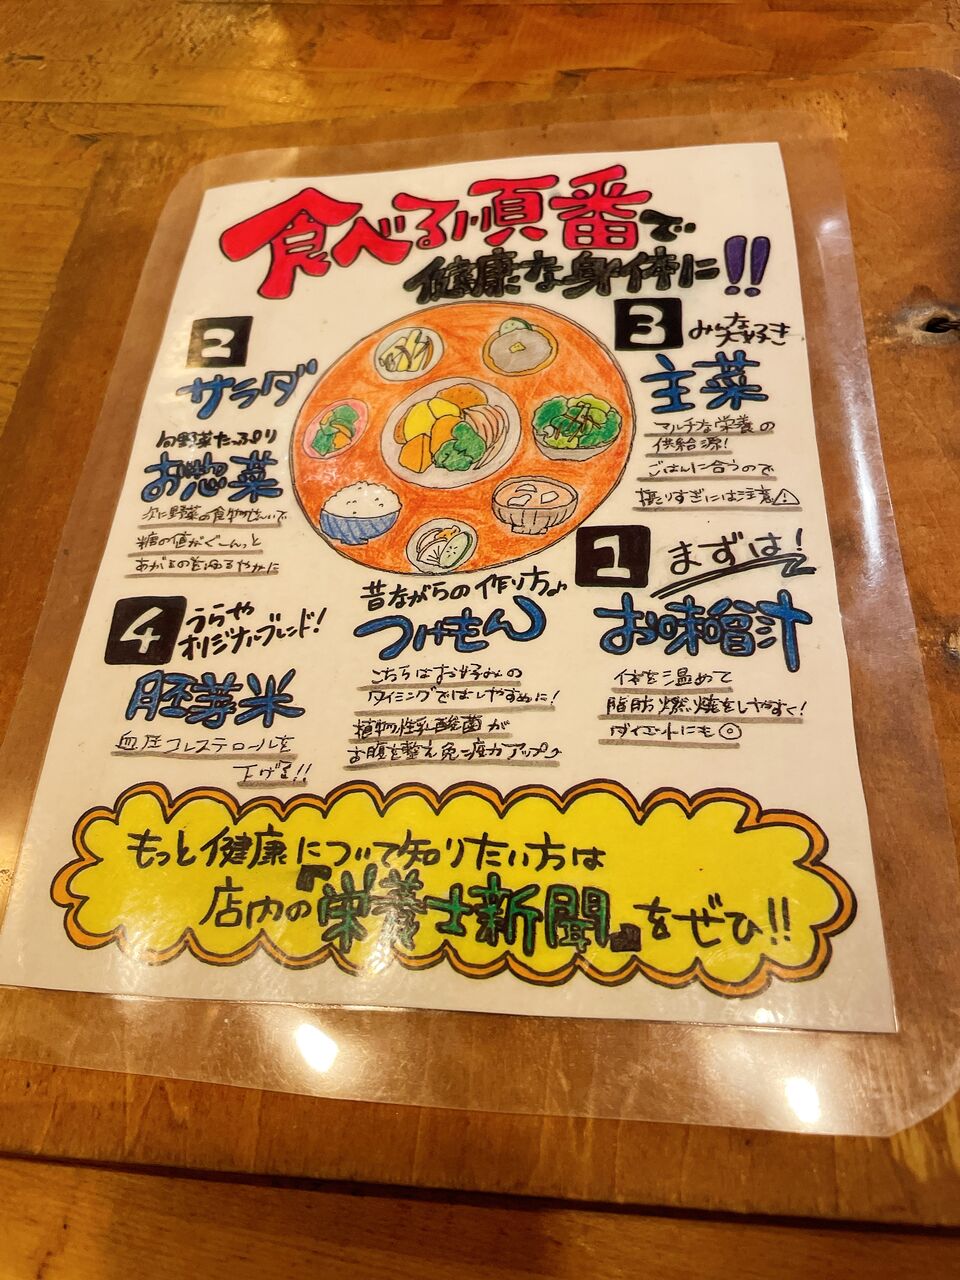 食べる順番で
健康な身体に!!
1 まずは!
お味噌汁
体を温めて
脂肪燃焼をしやすく!
ダイエットにも◎
2
サラダ
旬野菜たっぷり
お惣菜
次に野菜の食物せんいで
糖の値がぐーんと
あがるのをゆるやかに
3 みんな大好き
主菜
マルチな栄養の
供給源!
ごはんに合うので
摂りすぎには注意⚠
4 うらや
オリジナルブレンド!
胚芽米
血圧コレステロールを
下げる!!
昔ながらの作り方♪
つけもん
こちらはお好みの
タイミングではしやすめに!
植物性乳酸菌が
お腹を整え免疫力アップ♪
もっと健康について知りたい方は
店内の『栄養士新聞』をぜひ!!